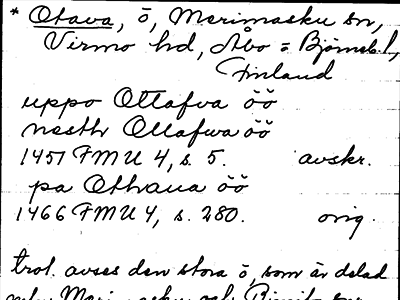 * Otava, ö, Merimasku sn,
Virmo hd, Åbo = Björneb. l,
Finland
uppo Ottafva öö
nesth Ottafwa öö
1451 FMU 4, s. 5. avskr.
pa Othaua öö
1466 FMU 4, s. 280. orig.
trol. avses den stora ö, som är delad
mln Merimasku och